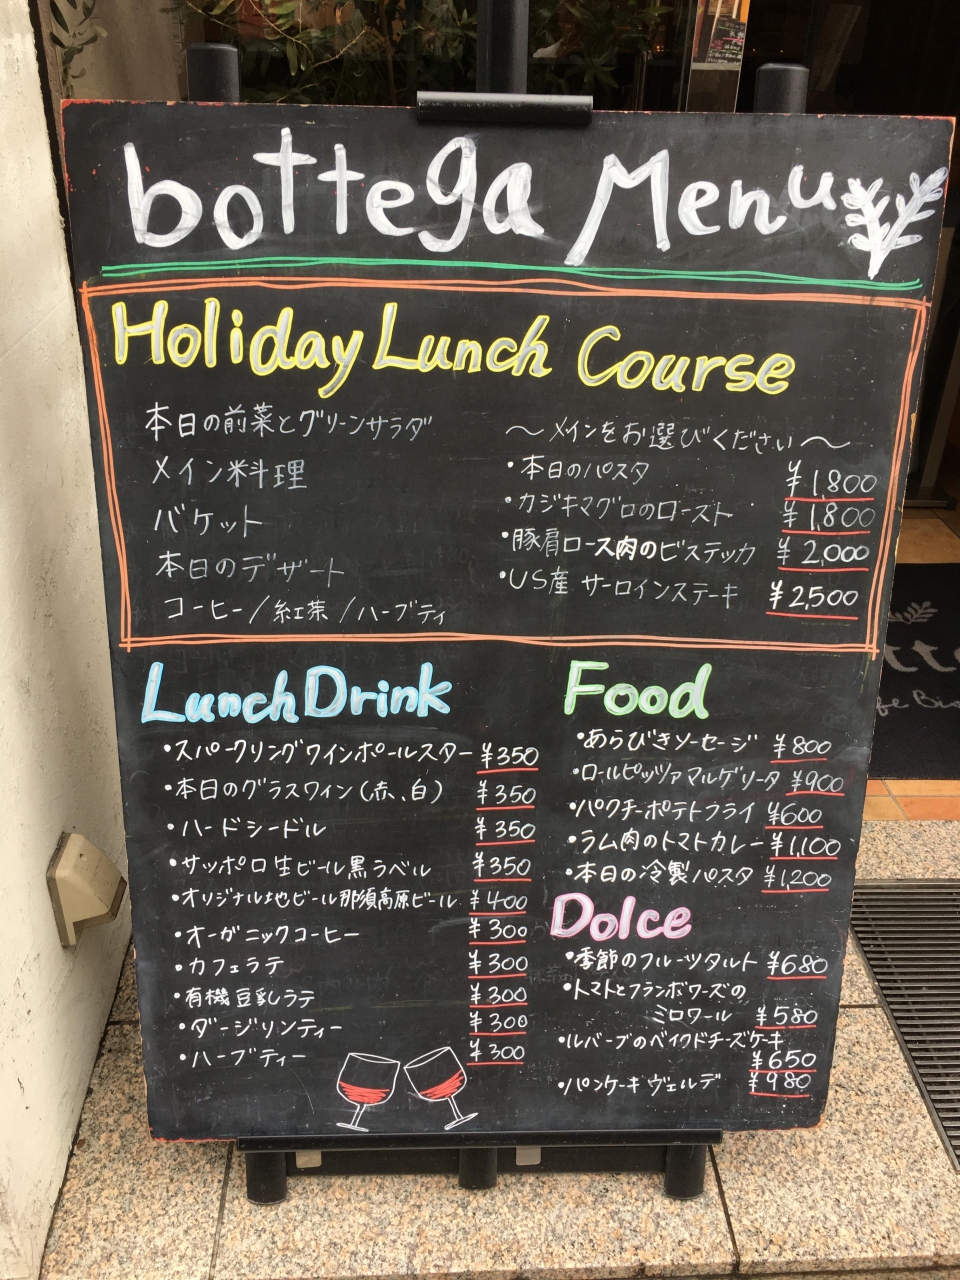 bottega Menu
Holiday Lunch Course
本日の前菜とグリーンサラダ
メイン料理
バケット
本日のデザート
コーヒー/紅茶/ハーブティ
〜メインをお選びください〜
・本日のパスタ ¥1,800
・カジキマグロのロースト ¥1,800
・豚肩ロース肉のビステッカ ¥2,000
・US産 サーロインステーキ ¥2,500
Lunch Drink
・スパークリングワインポールスター ¥350
・本日のグラスワイン(赤、白) ¥350
・ハードシードル ¥350
・サッポロ生ビール黒ラベル ¥350
・オリジナル地ビール那須高原ビール ¥400
・オーガニックコーヒー ¥300
・カフェラテ ¥300
・有機豆乳ラテ ¥300
・ダージリンティー ¥300
・ハーブティー ¥300
Food
・あらびきソーセージ ¥800
・ロールピッツァマルゲリータ ¥900
・パクチーポテトフライ ¥600
・ラム肉のトマトカレー ¥1,100
・本日の冷製パスタ ¥1,200
Dolce
・季節のフルーツタルト ¥680
・トマトとフランボワーズの
ミロワール ¥580
・ルバーブのベイクドチーズケーキ
¥650
・パンケーキ ヴェルデ ¥980